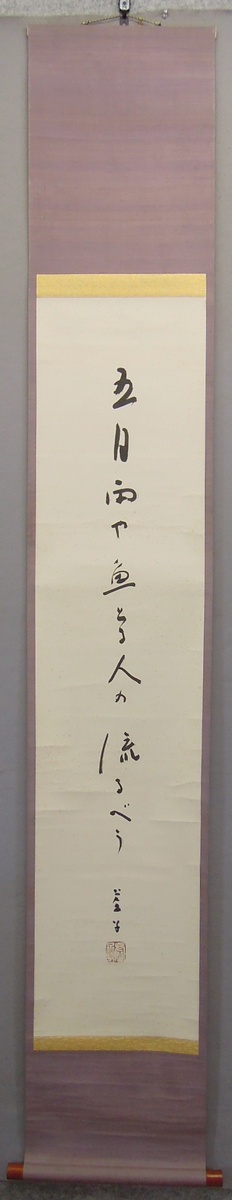 五月雨や魚とる人の流るべう